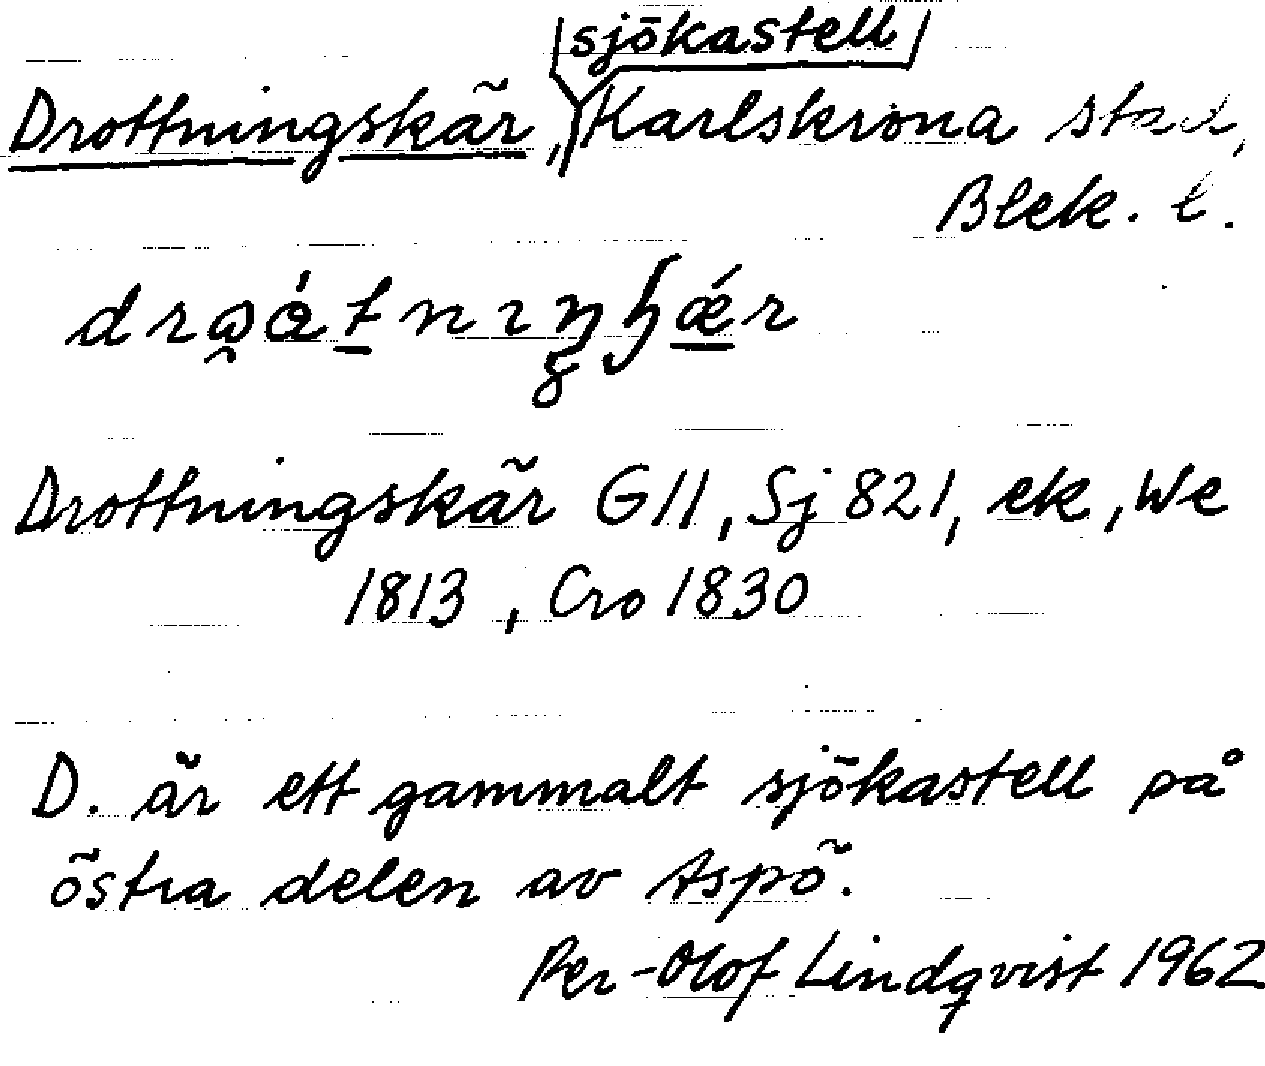 sjökastell
Drottningskär, Karlskrona stad,
Blek. l.
Drottningskär G11, Sj 821, ek, We
1813, Cro 1830
D. är ett gammalt sjökastell på
östra delen av Aspö.
Per-Olof Lindqvist 1962